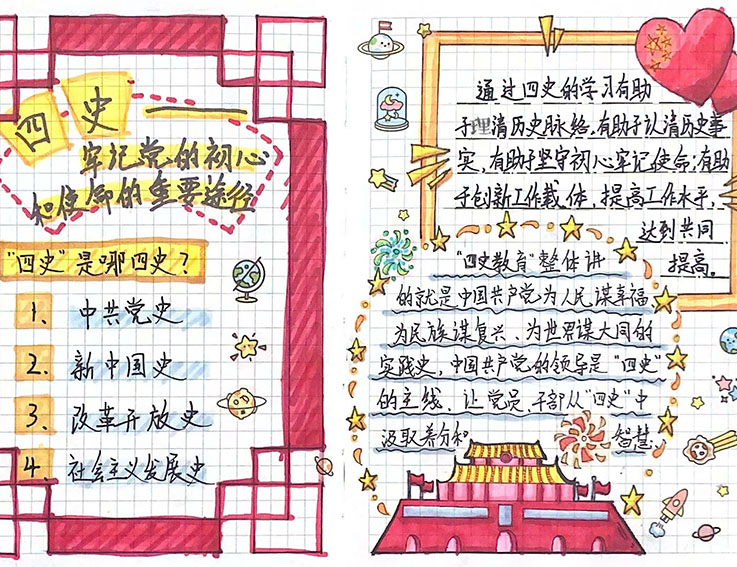 四史
牢记党的初心
和使命的重要途径
"四史"是哪四史？
1、中共党史
2、新中国史
3、改革开放史
4、社会主义发展史
通过四史的学习有助
于理清历史脉络，有助于认清历史事
实，有助于坚守初心牢记使命；有助
于创新工作载体，提高工作水平，
达到共同
提高。
"四史教育"整体讲
的就是中国共产党为人民谋幸福
为民族谋复兴、为世界谋大同的
实践史，中国共产党的领导是"四史"
的主线、让党员、干部从"四史"中
汲取养分和智慧.